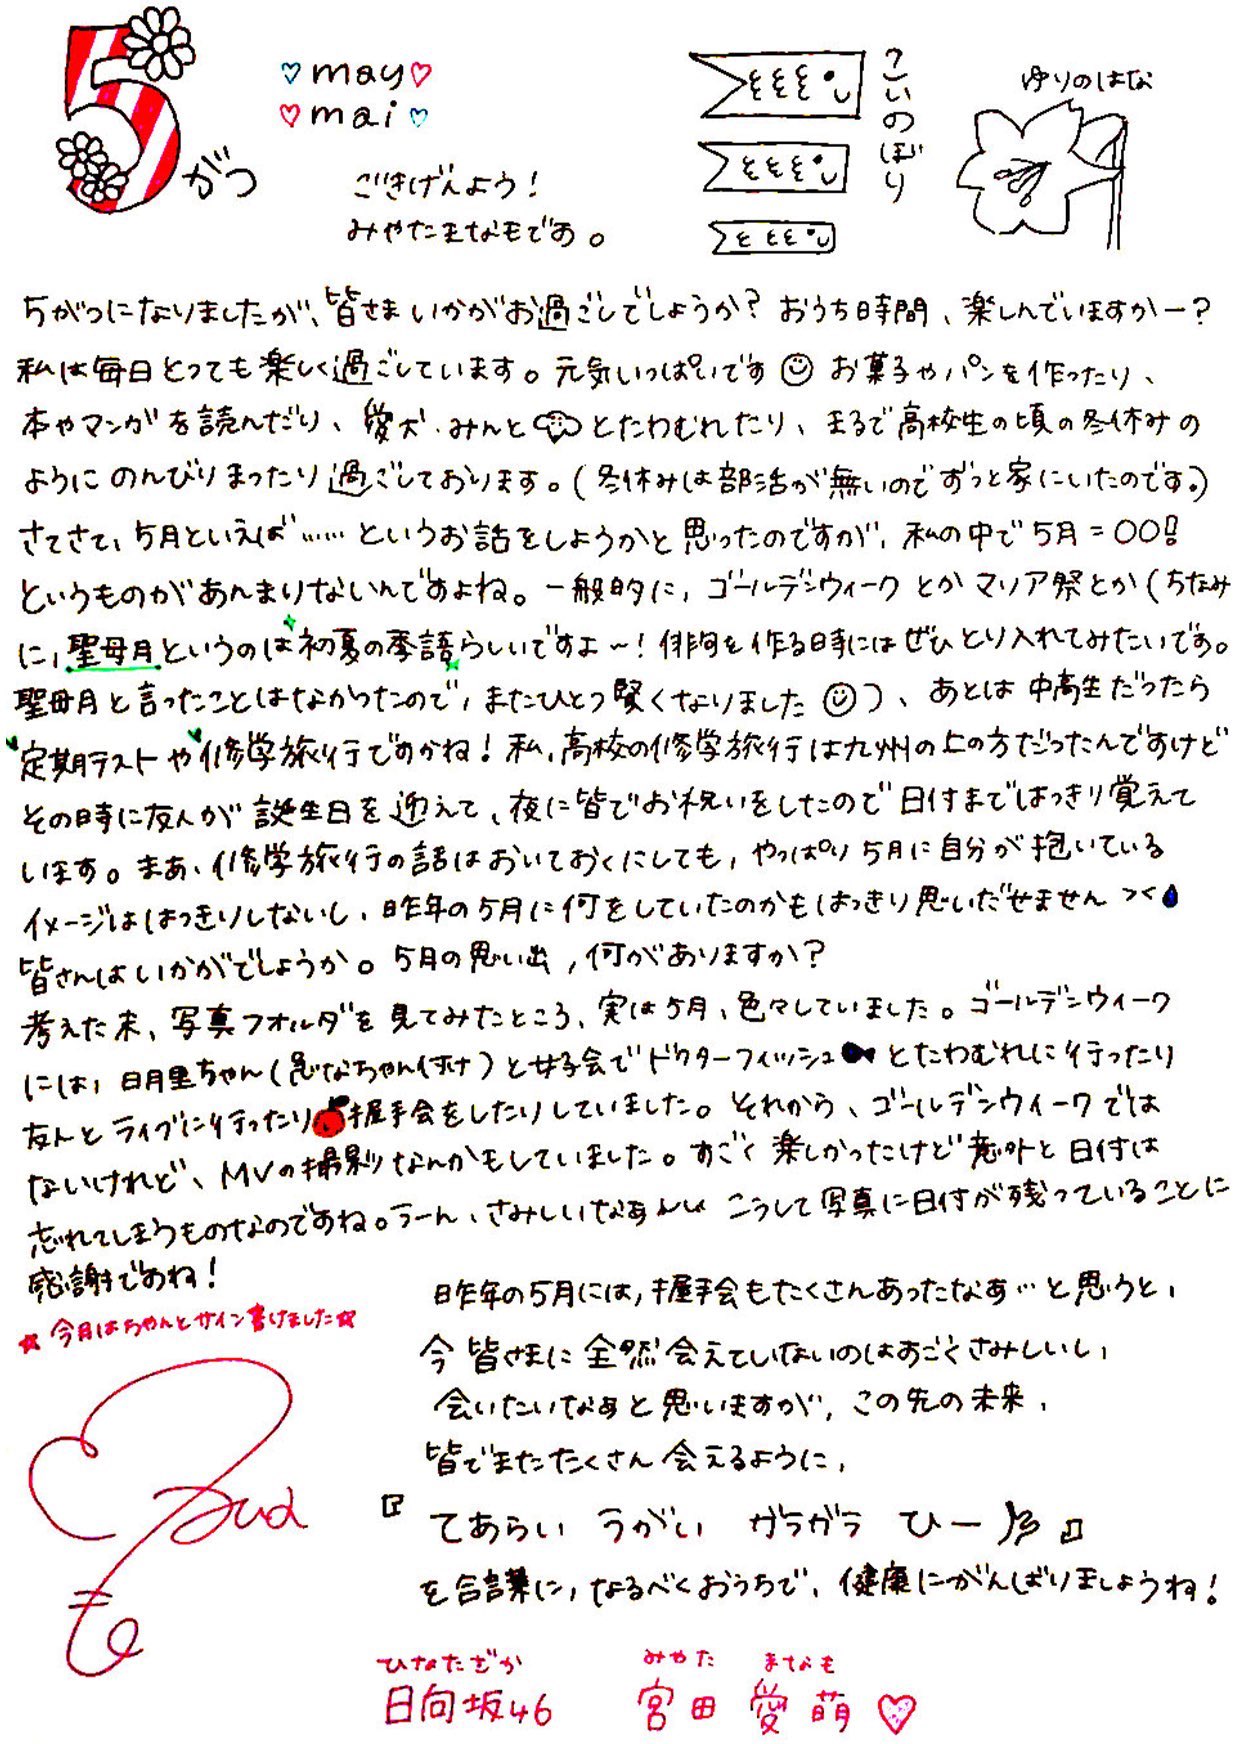 5がつ
♡may♡
♡mai♡
ごきげんよう!
みやたまなもです。
こいのぼり
ゆりのはな
5がつになりましたが、皆さまいかがお過ごしでしょうか? おうち時間、楽しんでいますかー?
私は毎日とっても楽しく過ごしています。元気いっぱいです☺ お菓子やパンを作ったり、
本やマンガを読んだり、愛犬・みんととたわむれたり、まるで高校生の頃の冬休みの
ようにのんびりまったり過ごしております。(冬休みは部活が無いのでずっと家にいたのです。)
さてさて、5月といえば……というお話をしようかと思ったのですが、私の中で5月=〇〇!!
というものがあんまりないんですよね。一般的に、ゴールデンウィークとかマリア祭とか(ちなみ
に、聖母月というのは初夏の季語らしいですよ~!俳句を作る時にはぜひとり入れてみたいです。
聖母月と言ったことはなかったので、またひとつ賢くなりました☺)、あとは中高生だったら
定期テストや修学旅行ですかね!私、高校の修学旅行は九州の上の方だったんですけど
その時に友人が誕生日を迎えて、夜に皆でお祝いをしたので日付まではっきり覚えて
います。まあ、修学旅行の話はおいておくにしても、やっぱり5月に自分が抱いている
イメージははっきりしないし、昨年の5月に何をしていたのかもはっきり思いだせません
皆さんはいかがでしょうか。5月の思い出、何がありますか?
考えた末、写真フォルダを見てみたところ、実は5月、色々していました。ゴールデンウィーク
には、日月里ちゃん(急なちゃん付け)と女子会でドクターフィッシュとたわむれに行ったり
友人とライブに行ったり握手会をしたりしていました。それから、ゴールデンウィークでは
ないけれど、MVの撮影なんかもしていました。すごく楽しかったけど意外と日付は
忘れてしまうものなのですね。うーん、さみしいなあ〜 こうして写真に日付が残っていることに
感謝ですね!
昨年の5月には、握手会もたくさんあったなあ…と思うと、
☆今月はちゃんとサイン書けました☆
今皆さまに全然会えていないのはすごくさみしいし、
会いたいなぁと思いますが、この先の未来、
皆でまたたくさん会えるように、
『てあらい うがい ガラガラ ひー 』
を合言葉に、なるべくおうちで、健康にがんばりましょうね!
ひなたざか みやた まなも
日向坂46 宮田 愛萌♡